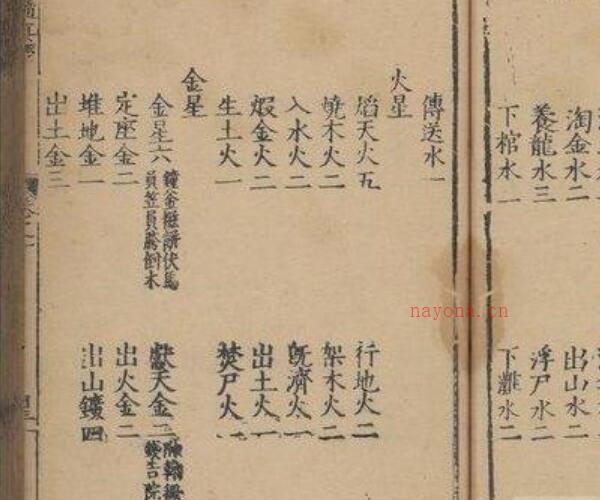 淘金水二 出山水二
養龍水三 浮尸水二
下棺水一 下灘水二
傳送水一
火星
熖天火五 行地火二
燒木火二 架木火二
入水火二 既濟火一
煆金火二 出土火一
生土火一 焚尸火一
金星
金星六 鐘釜伏馬
員笠員倒木 天金二
定座金二 出火金二
堆地金一 出山鑛四
出土金三
nayona.cn